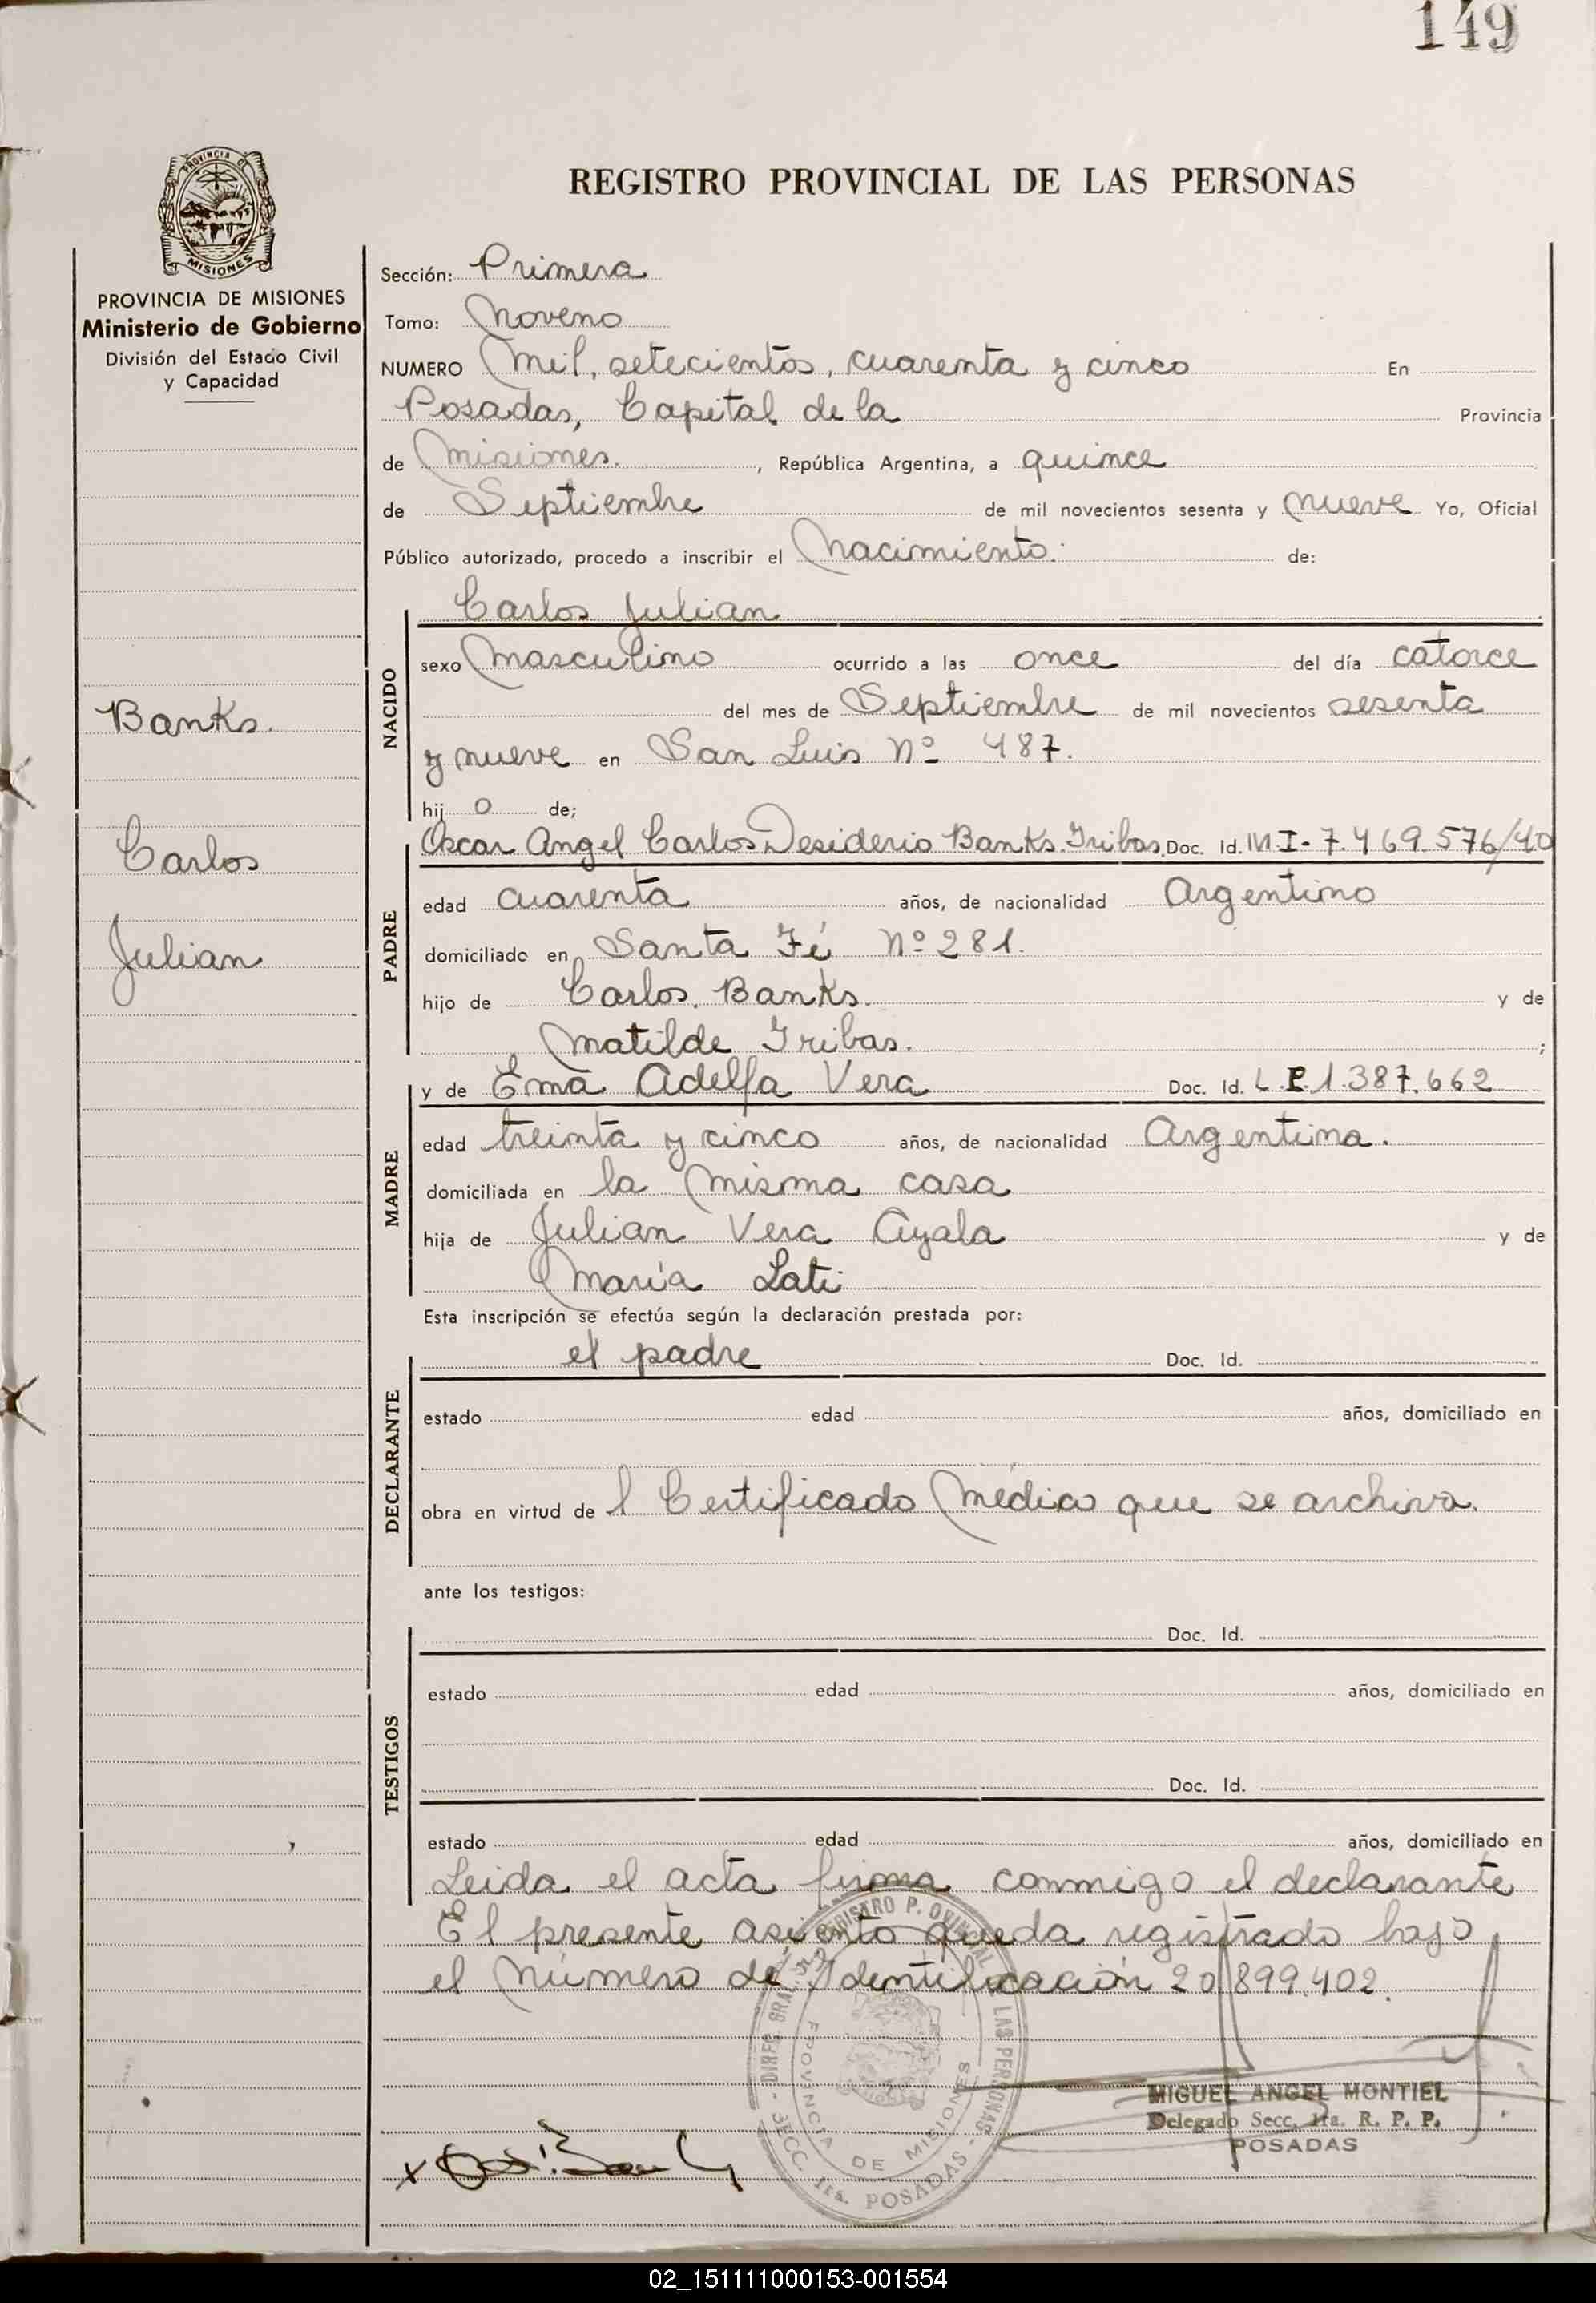 149
PROVINCIA DE
MISIONES
PROVINCIA DE MISIONES
Ministerio de Gobierno
División del Estado Civil
y Capacidad
Banks.
Carlos
Julian
REGISTRO PROVINCIAL DE LAS PERSONAS
Sección: Primera
Tomo: Noveno
NUMERO Mil, setecientos, cuarenta y cinco En
Posadas, Capital de la Provincia
de Misiones. , República Argentina, a quince
de Septiembre de mil novecientos sesenta y nueve Yo, Oficial
Público autorizado, procedo a inscribir el Nacimiento. de:
Carlos Julian
NACIDO
sexo Masculino ocurrido a las once del día catorce
del mes de Septiembre de mil novecientos sesenta
y nueve en San Luis Nº 487.
hij o de;
PADRE
Oscar Angel Carlos Desiderio Banks Gribas Doc. Id. M I- 7.469.576/40
edad cuarenta años, de nacionalidad Argentino
domiciliado en Santa Fé Nº 281.
hijo de Carlos Banks. y de
Matilde Gribas. ;
MADRE
y de Ema Adelfa Vera Doc. Id. L.E.1.387.662
edad treinta y cinco años, de nacionalidad Argentina.
domiciliada en la misma casa
hija de Julian Vera Ayala y de
María Lati
Esta inscripción se efectúa según la declaración prestada por:
DECLARANTE
el padre Doc. Id.
estado edad años, domiciliado en
obra en virtud de l Certificado Médico que se archiva.
ante los testigos:
TESTIGOS
Doc. Id.
estado edad años, domiciliado en
Doc. Id.
estado edad años, domiciliado en
Leida el acta firma conmigo el declarante
El presente asiento queda registrado bajo
el Número de Identificación 20.899.402.
PROVINCIA DE MISIONES
SECC. 1ra. POSADAS
MIGUEL ANGEL MONTIEL
Delegado Secc. 1ra. R. P. P.
POSADAS
02_151111000153-001554